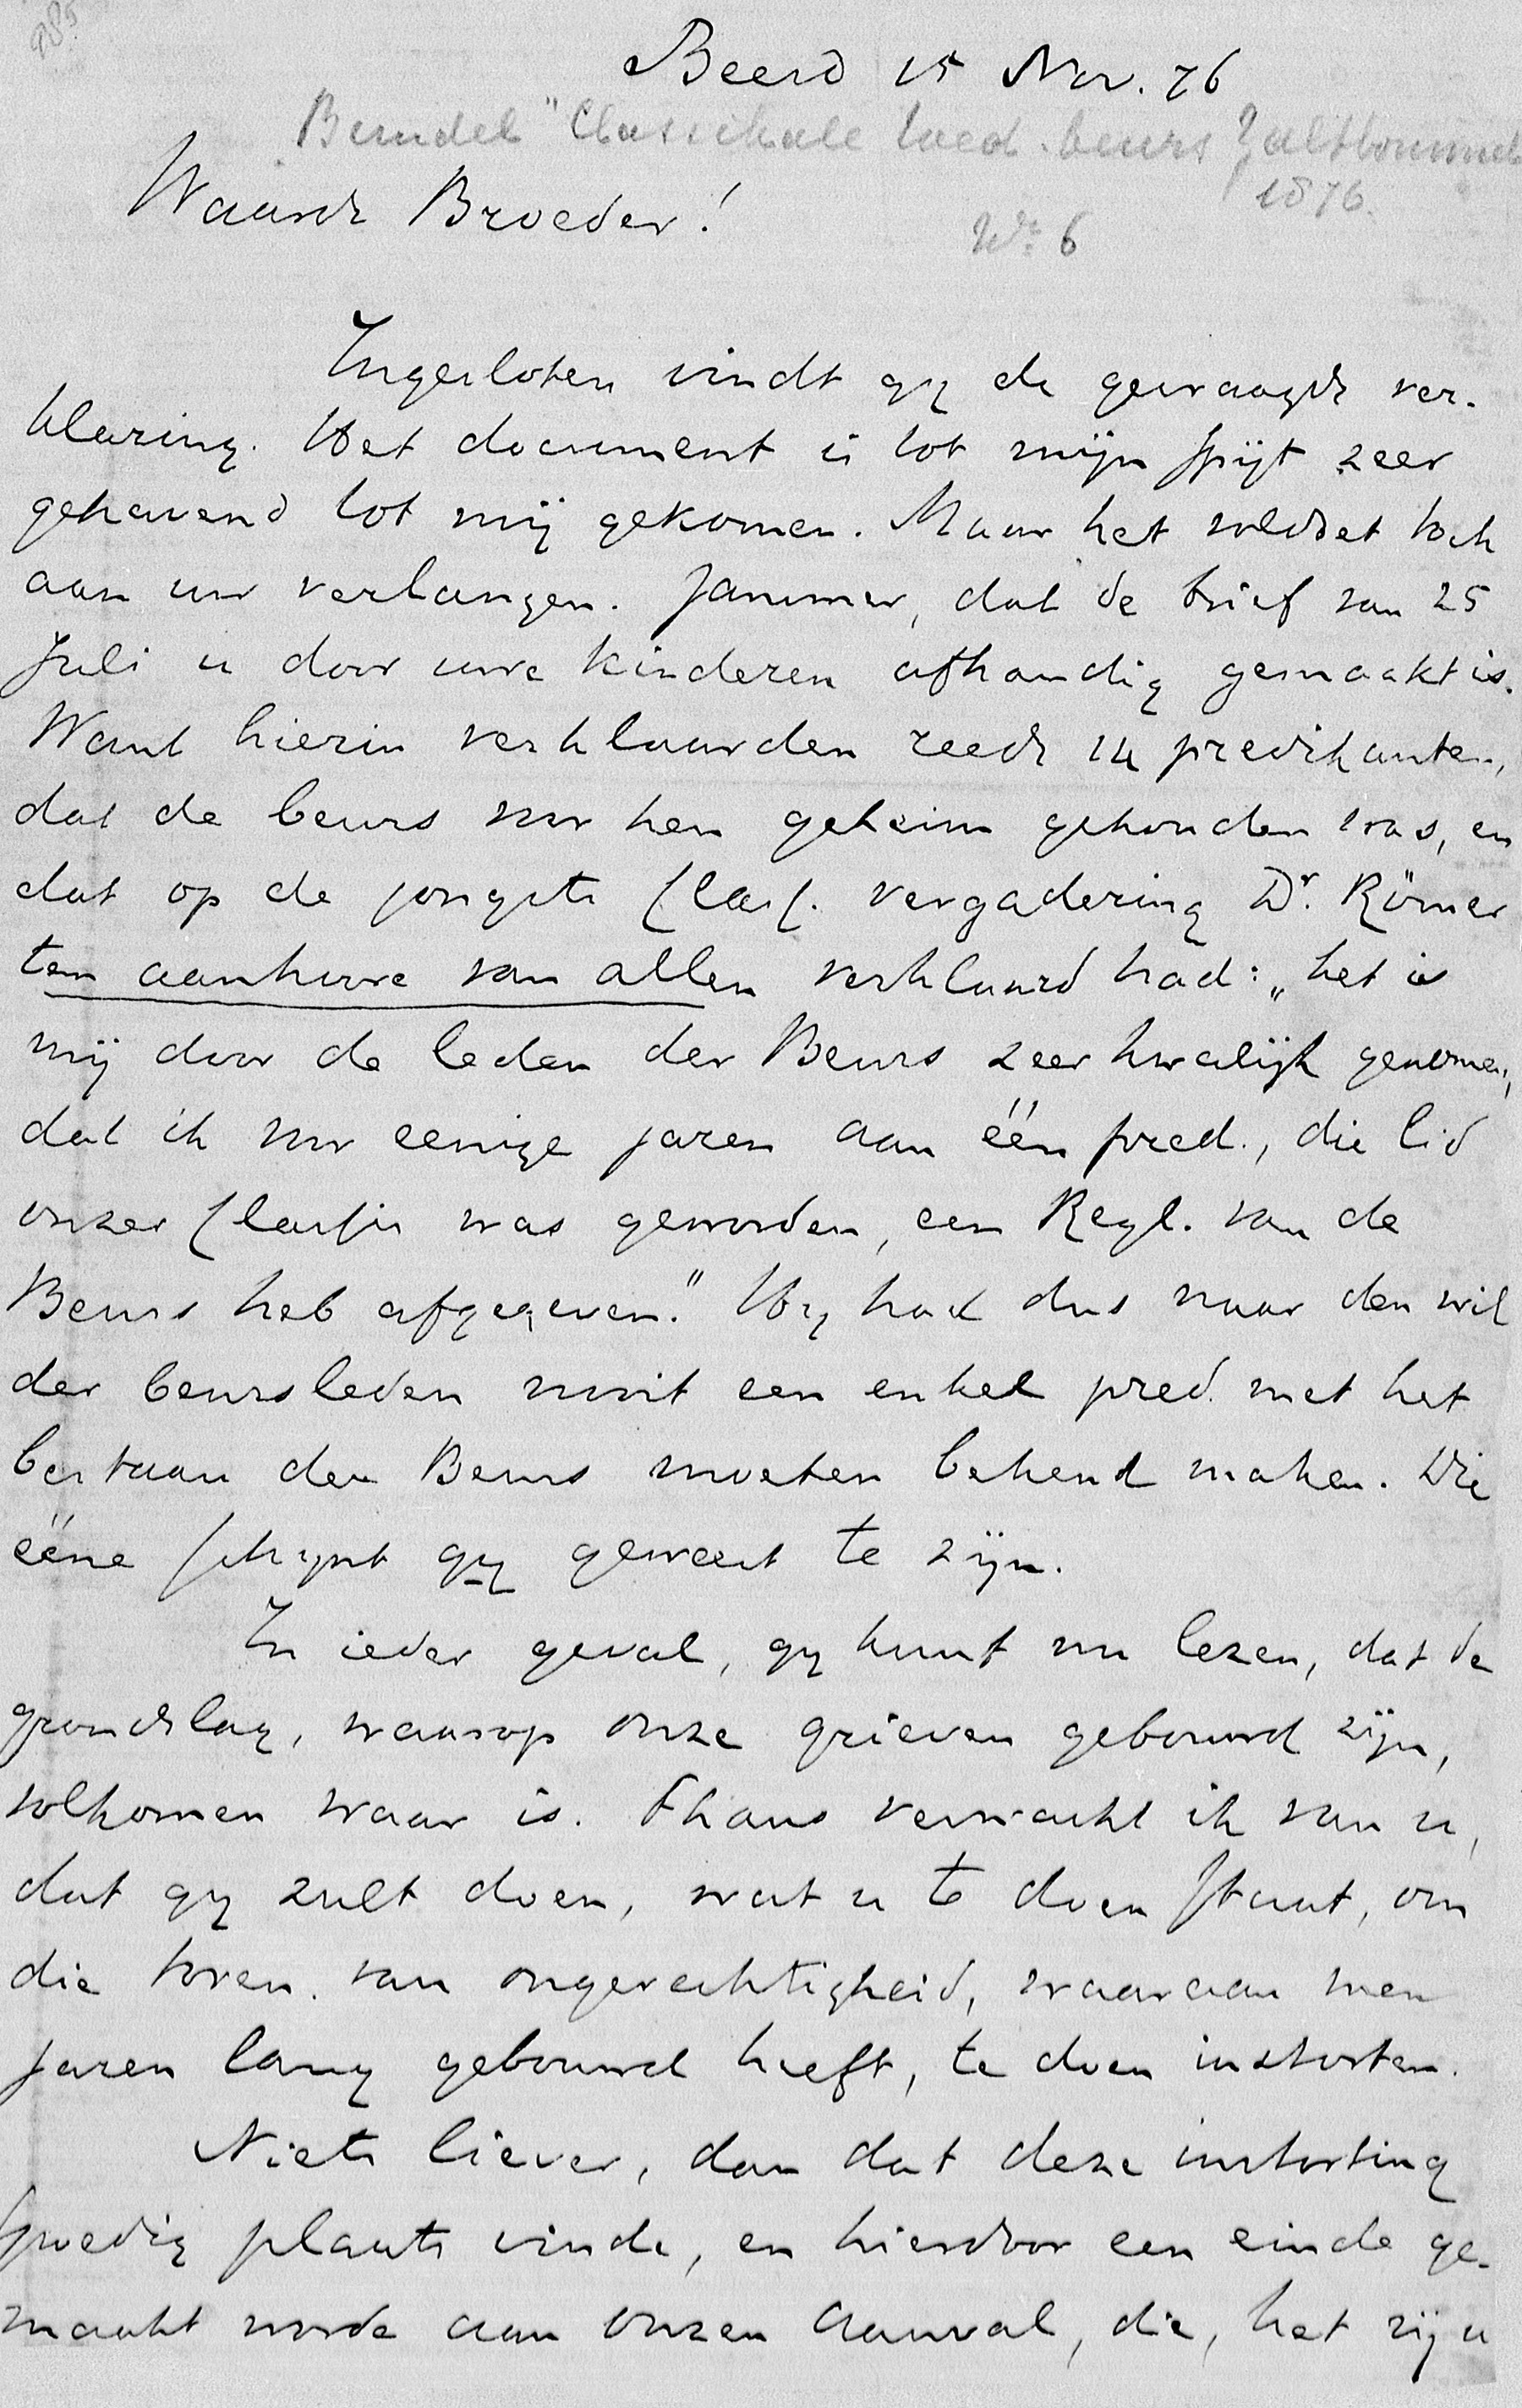 285
Beesd 15 Nov. 76
Bundel "Classikale Weed. beurs Zaltbommel
1876.
No 6
Waarde Broeder!
Ingesloten vindt gij de gevraagde ver-
klaring. Het document is tot mijn spijt zeer
gehavend tot mij gekomen. Maar het voldoet toch
aan uw verlangen. Jammer, dat de brief van 25
Juli u door uwe kinderen afhandig gemaakt is.
Want hierin verklaarden reeds 14 predikanten,
dat de beurs voor hen geheim gehouden was, en
dat op de jongste Class. vergadering Dr. Römer
ten aanhoore van allen verklaard had: „het is
mij door de leden der Beurs zeer kwalijk genomen,
dat ik voor eenige jaren aan één pred., die lid
onzer Classis was geworden, een Regl. van de
Beurs heb afgegeven." Hij had dus naar den wil
der beursleden nooit een enkel pred. met het
bestaan der Beurs moeten bekend maken. Die
ééne schijnt gij geweest te zijn.
In ieder geval, gij kunt nu lezen, dat de
grondslag, waarop onze grieven gebouwd zijn,
volkomen waar is. Thans verwacht ik van u,
dat gij zult doen, wat u te doen staat, om
die toren van ongerechtigheid, waaraan men
jaren lang gebouwd heeft, te doen instorten.
Niets liever, dan dat deze instorting
spoedig plaats vinde, en hierdoor een einde ge-
maakt worde aan onzen aanval, die, het zij u